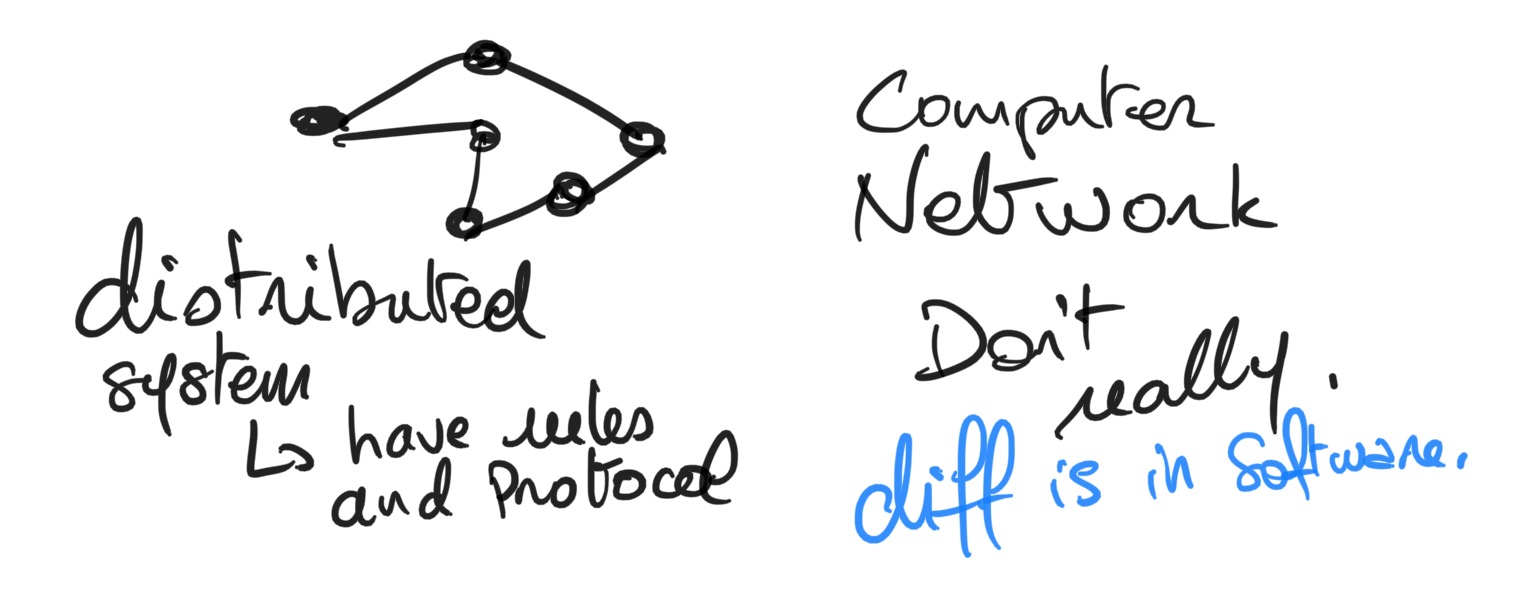 distributed
system
↳ have rules
and protocol
Computer
Network
Don't
really.
diff is in software.